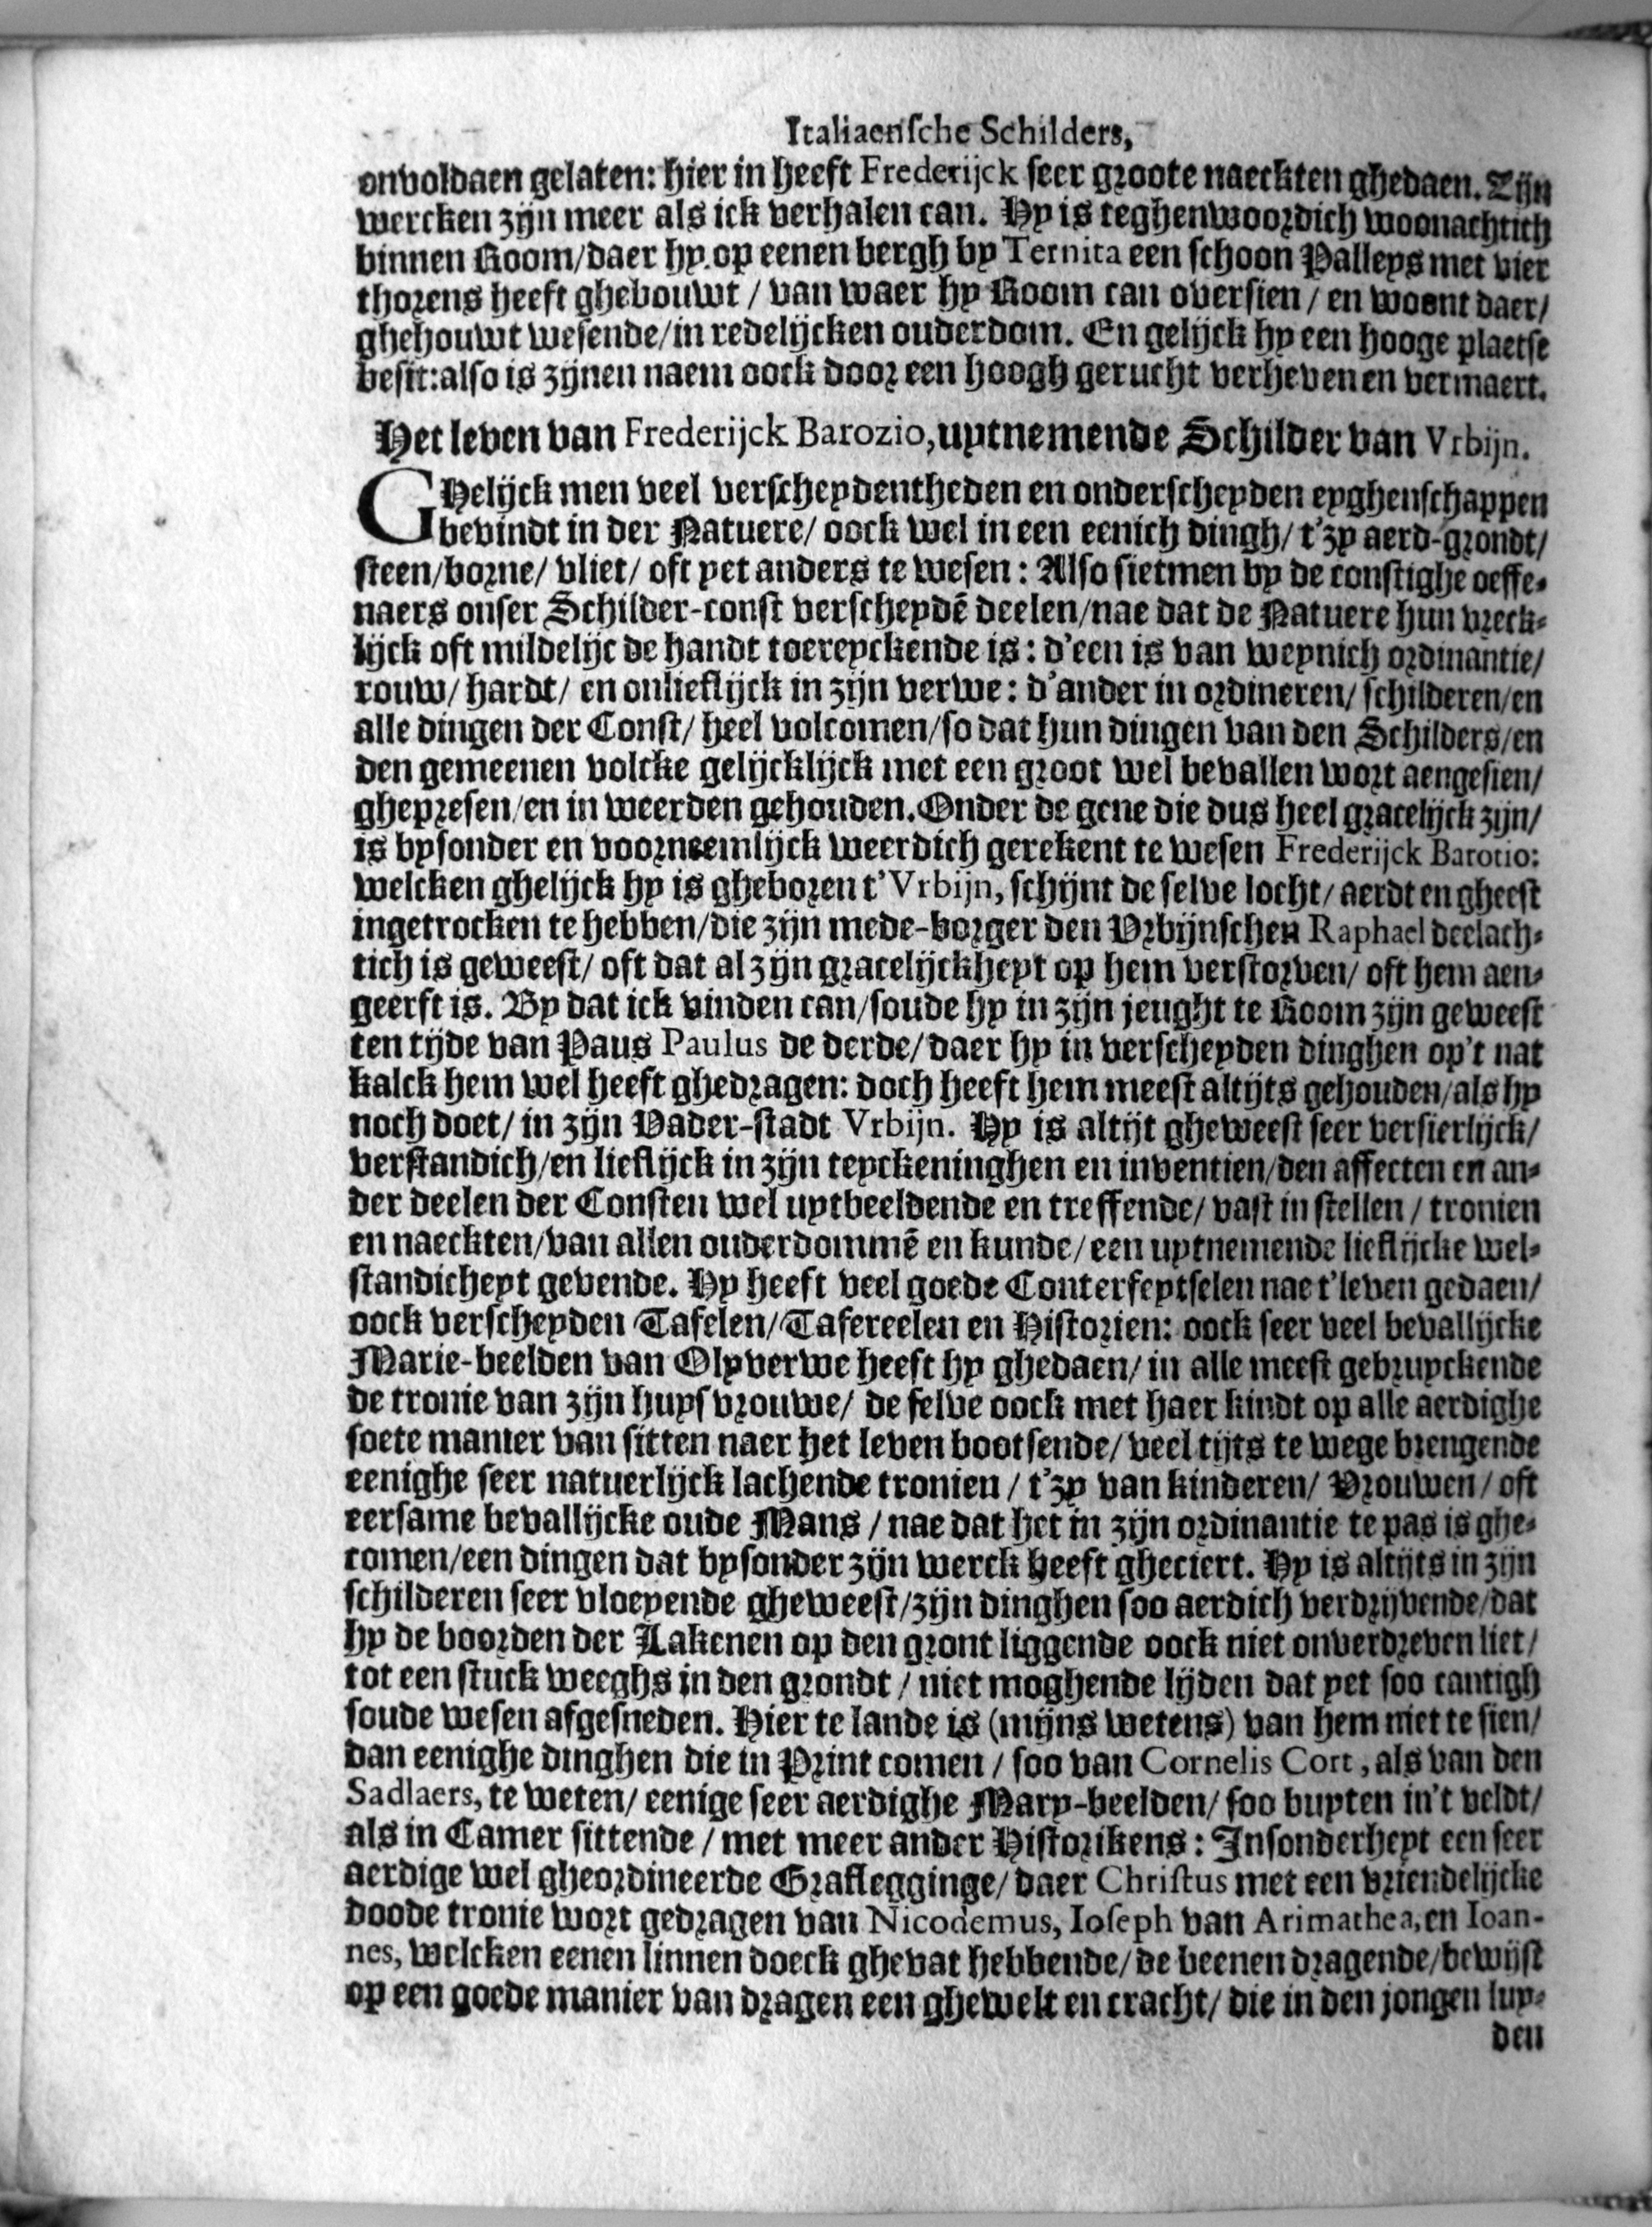 Italiaensche Schilders,
onvoldaen gelaten: hier in heeft Frederijck seer groote naeckten ghedaen. Zijn
wercken zijn meer als ick verhalen can. Hy is teghenwoordich woonachtich
binnen Room/daer hy op eenen bergh by Ternita een schoon Palleys met vier
thorens heeft ghebouwt / van waer hy Room can oversien / en woont daer/
ghehouwt wesende/in redelijcken ouderdom. En gelijck hy een hooge plaetse
besit: also is zijnen naem oock door een hoogh gerucht verheven en vermaert.
Het leven van Frederijck Barozio, uytnemende Schilder van Vrbijn.
GHelijck men veel verscheydentheden en onderscheyden eyghenschappen
bevindt in der Natuere/ oock wel in een eenich dingh/ t'zy aerd-grondt/
steen/borne/ vliet/ oft yet anders te wesen: Also sietmen by de constighe oeffe-
naers onser Schilder-const verscheydē deelen/nae dat de Natuere hun vreck-
lijck oft mildelijc de handt toereyckende is: d'een is van weynich ordinantie/
rouw/ hardt/ en onlieflijck in zijn verwe: d'ander in ordineren/ schilderen/en
alle dingen der Const/ heel volcomen/so dat hun dingen van den Schilders/en
den gemeenen volcke gelijcklijck met een groot wel bevallen wort aengesien/
ghepresen/en in weerden gehouden. Onder de gene die dus heel gracelijck zijn/
is bysonder en voorneemlijck weerdich gerekent te wesen Frederijck Barotio:
welcken ghelijck hy is gheboren t'Vrbijn, schijnt de selve locht/ aerdt en gheest
ingetrocken te hebben/die zijn mede-borger den Vrbijnschen Raphael deelach-
tich is geweest/ oft dat al zijn gracelijckheyt op hem verstorven/ oft hem aen-
geerft is. By dat ick vinden can/soude hy in zijn jeught te Room zijn geweest
ten tijde van Paus Paulus de derde/daer hy in verscheyden dinghen op't nat
kalck hem wel heeft ghedragen: doch heeft hem meest altijts gehouden/als hy
noch doet/ in zijn Vader-stadt Vrbijn. Hy is altijt gheweest seer versierlijck/
verstandich/en lieflijck in zijn teyckeninghen en inventien/den affecten en an-
der deelen der Consten wel uytbeeldende en treffende/ vast in stellen / tronien
en naeckten/van allen ouderdommē en kunde/een uytnemende lieflijcke wel-
standicheyt gevende. Hy heeft veel goede Conterfeytselen nae t'leven gedaen/
oock verscheyden Tafelen/Tafereelen en Historien: oock seer veel bevallijcke
Marie-beelden van Olyverwe heeft hy ghedaen/ in alle meest gebruyckende
de tronie van zijn huysvrouwe/ de selve oock met haer kindt op alle aerdighe
soete manier van sitten naer het leven bootsende/ veel tijts te wege brengende
eenighe seer natuerlijck lachende tronien / t'zy van kinderen/ Vrouwen/ oft
eersame bevallijcke oude Mans / nae dat het in zijn ordinantie te pas is ghe-
comen/een dingen dat bysonder zijn werck heeft gheciert. Hy is altijts in zijn
schilderen seer vloeyende gheweest/zijn dinghen soo aerdich verdrijvende/dat
hy de boorden der Lakenen op den gront liggende oock niet onverdreven liet/
tot een stuck weeghs in den grondt / niet moghende lijden dat yet soo cantigh
soude wesen afgesneden. Hier te lande is (mijns wetens) van hem niet te sien/
dan eenighe dinghen die in Print comen / soo van Cornelis Cort, als van den
Sadlaers, te weten/ eenige seer aerdighe Mary-beelden/ soo buyten in't veldt/
als in Camer sittende / met meer ander Historikens: Insonderheyt een seer
aerdige wel gheordineerde Graflegginge/ daer Christus met een vriendelijcke
doode tronie wort gedragen van Nicodemus, Ioseph van Arimathea, en Ioan-
nes, welcken eenen linnen doeck ghevat hebbende/ de beenen dragende/bewijst
op een goede manier van dragen een ghewelt en cracht/ die in den jongen luy-
den